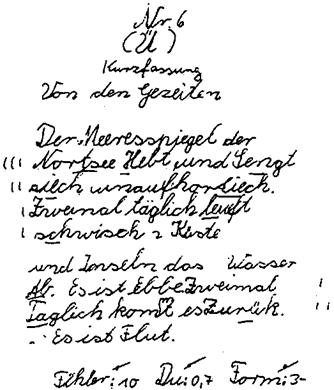 Nr. 6
(Ü)
Kurzfassung
Von den Gezeiten
Der Meeresspiegel der
Nortsee Hebt und Sengt
siech unaufhörliech.
Zweimal täglich leuft
schwisch 2 Küste
und Inseln das Wasser
Ab. Es ist Ebbe Zweimal
Täglich komt es Zurük.
Es ist Flut.
Fehler: 10 Du: 0,7 Form: 3-